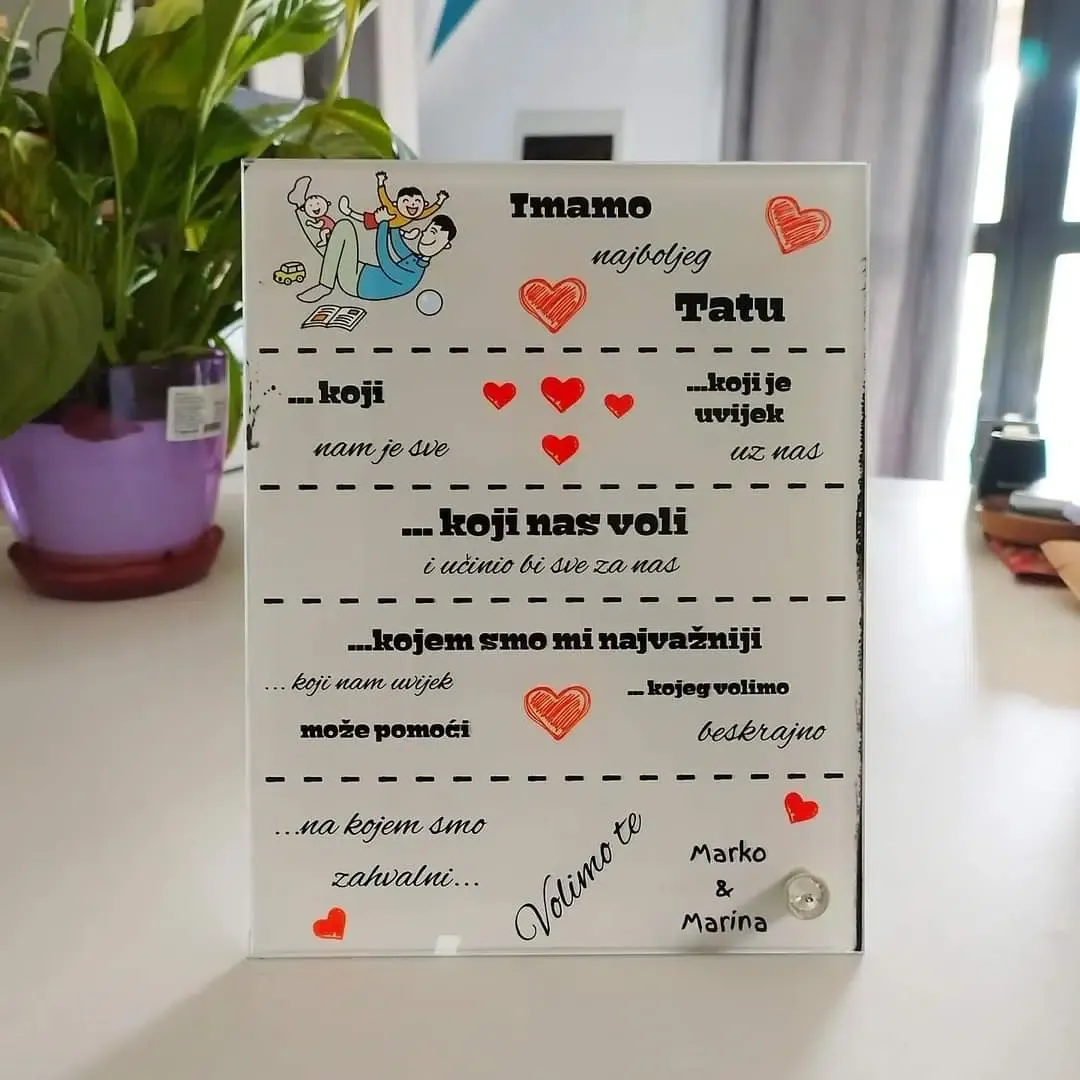 Imamo
najboljeg
Tatu
... koji
nam je sve
...koji je
uvijek
uz nas
... koji nas voli
i učinio bi sve za nas
...kojem smo mi najvažniji
...koji nam uvijek
može pomoći
... kojeg volimo
beskrajno
...na kojem smo
zahvalni...
Volimo te
Marko
&
Marina